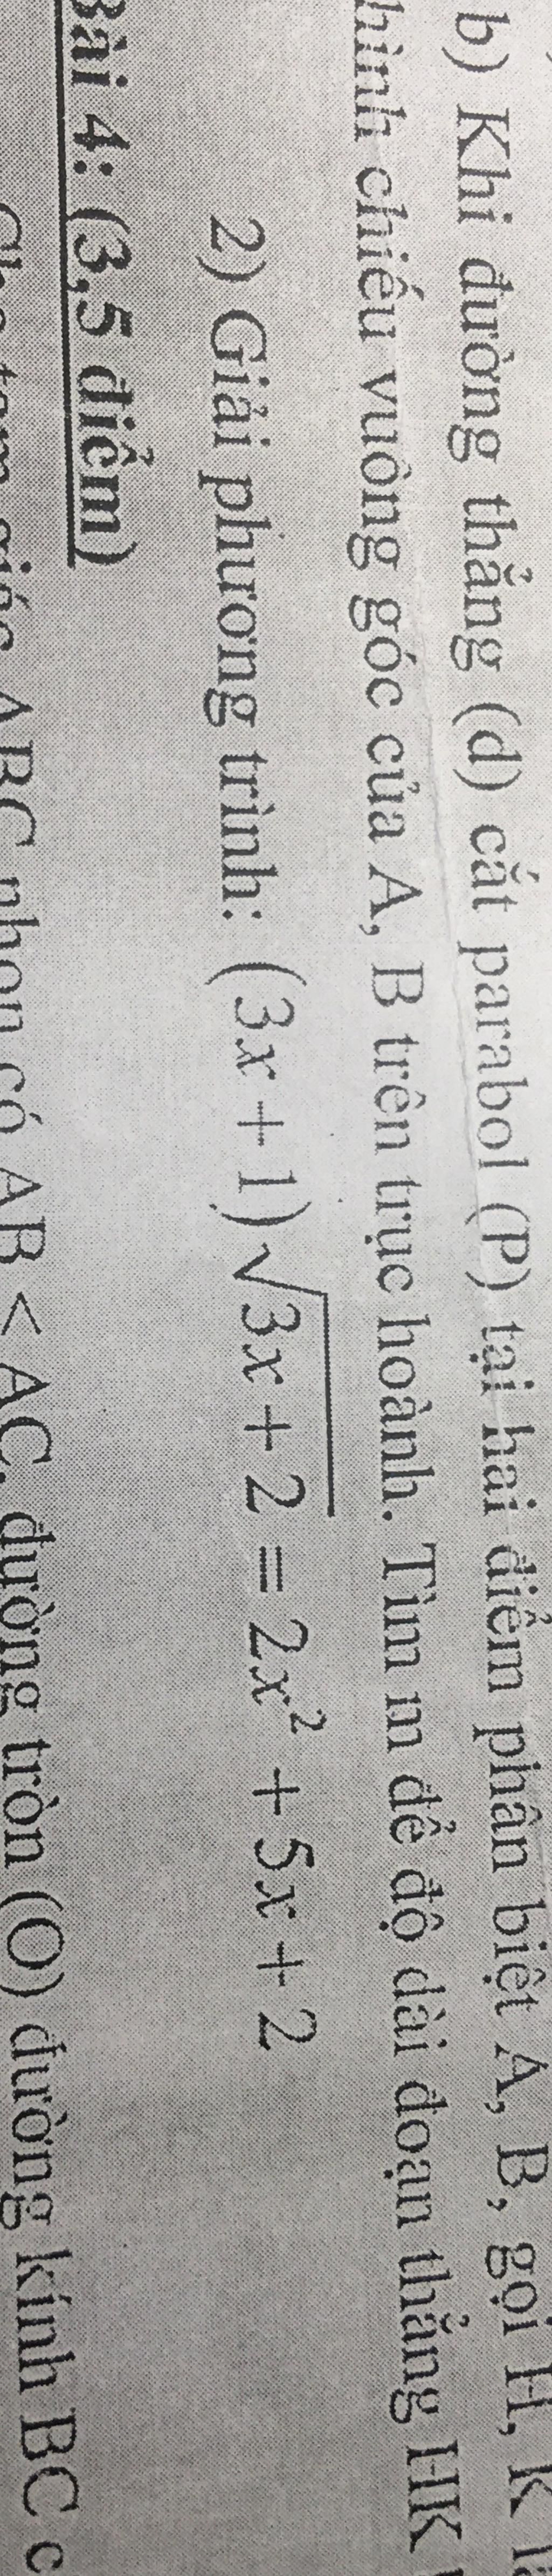 b) Khi đường thẳng (d) cắt parabol (P) tại hai điểm phân biệt A, B, gọi H, K
hình chiếu vuông góc của A, B trên trục hoành. Tìm m để độ dài đoạn thẳng HK
2) Giải phương trình: (3x + 1)√(3x + 2) = 2x² + 5x + 2
Bài 4: (3,5 điểm)
Cho tam giác ABC nhọn có AB < AC, đường tròn (O) đường kính BC